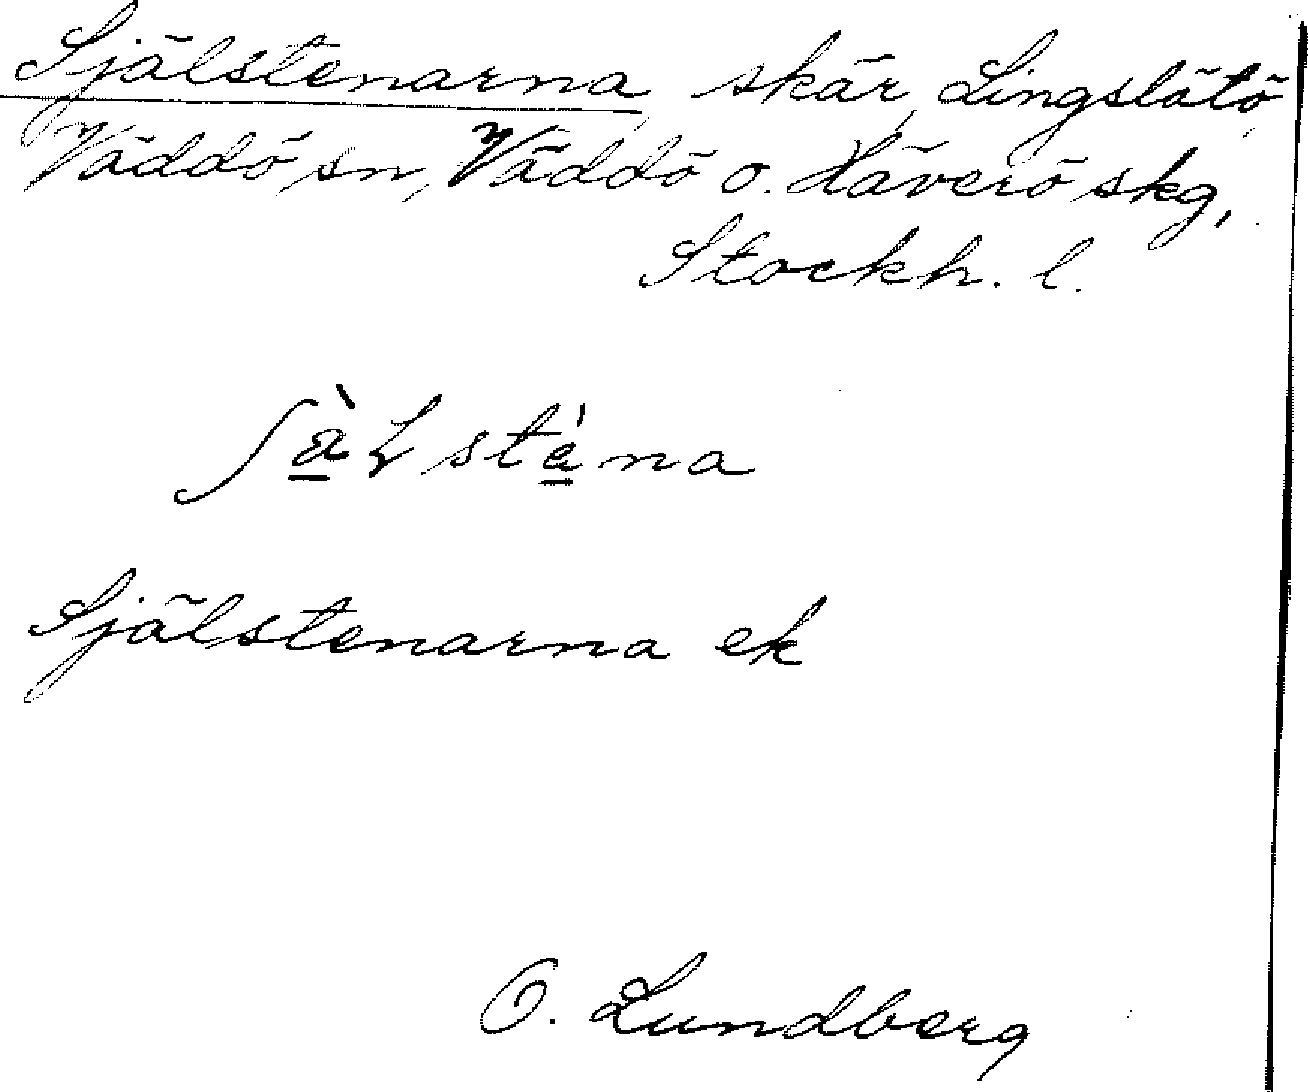 Själstenarna skär, Lingslätö,
Väddö sn, Väddö o. Häverö skg,
Stockh. l.
ʃà̠Ɫstà̠na
Själstenarna ek
O. Lundberg